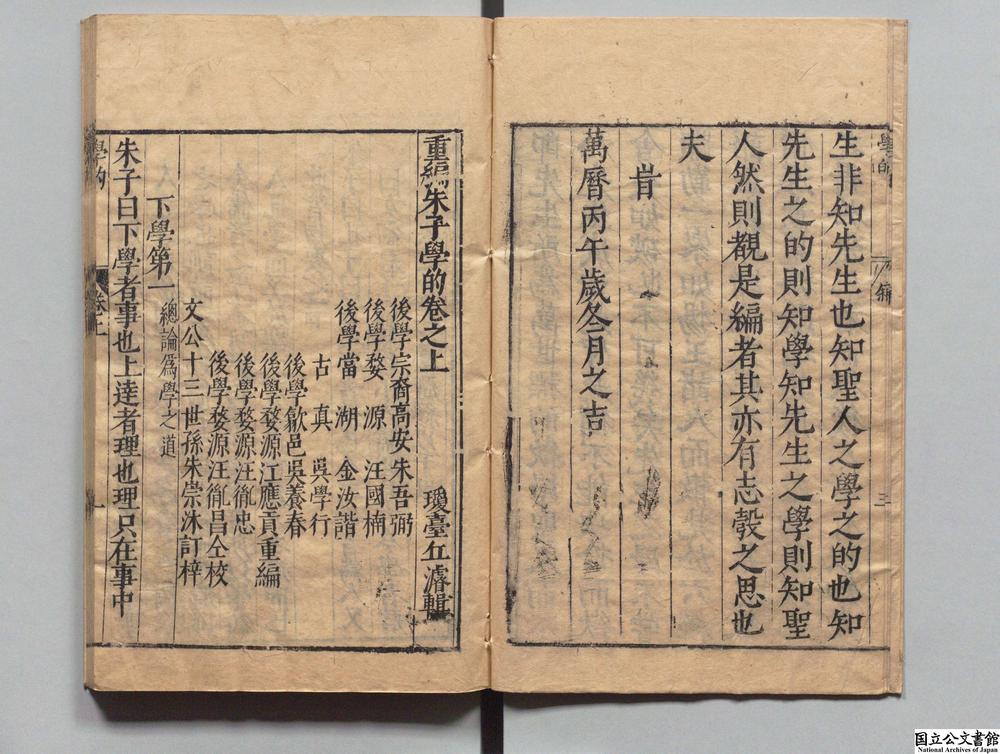 生非知先生也知聖人之學之的也知
先生之的則知學知先生之學則知聖
人然則觀是編者其亦有志彀之思也
夫
旹
萬曆丙午歲冬月之吉
重編朱子學的卷之上
瓊臺丘濬輯
後學宗裔高安朱吾弼
後學婺源汪國楠
後學當湖金汝諧
古真吳學行
後學歙邑吳養春
後學婺源江應貢重編
後學婺源汪胤忠
後學婺源汪胤昌仝校
文公十三世孫朱崇沐訂梓
下學第一
總論爲學之道
朱子曰下學者事也上達者理也理只在事中
學的
卷上
一
国立公文書館
National Archives of Japan